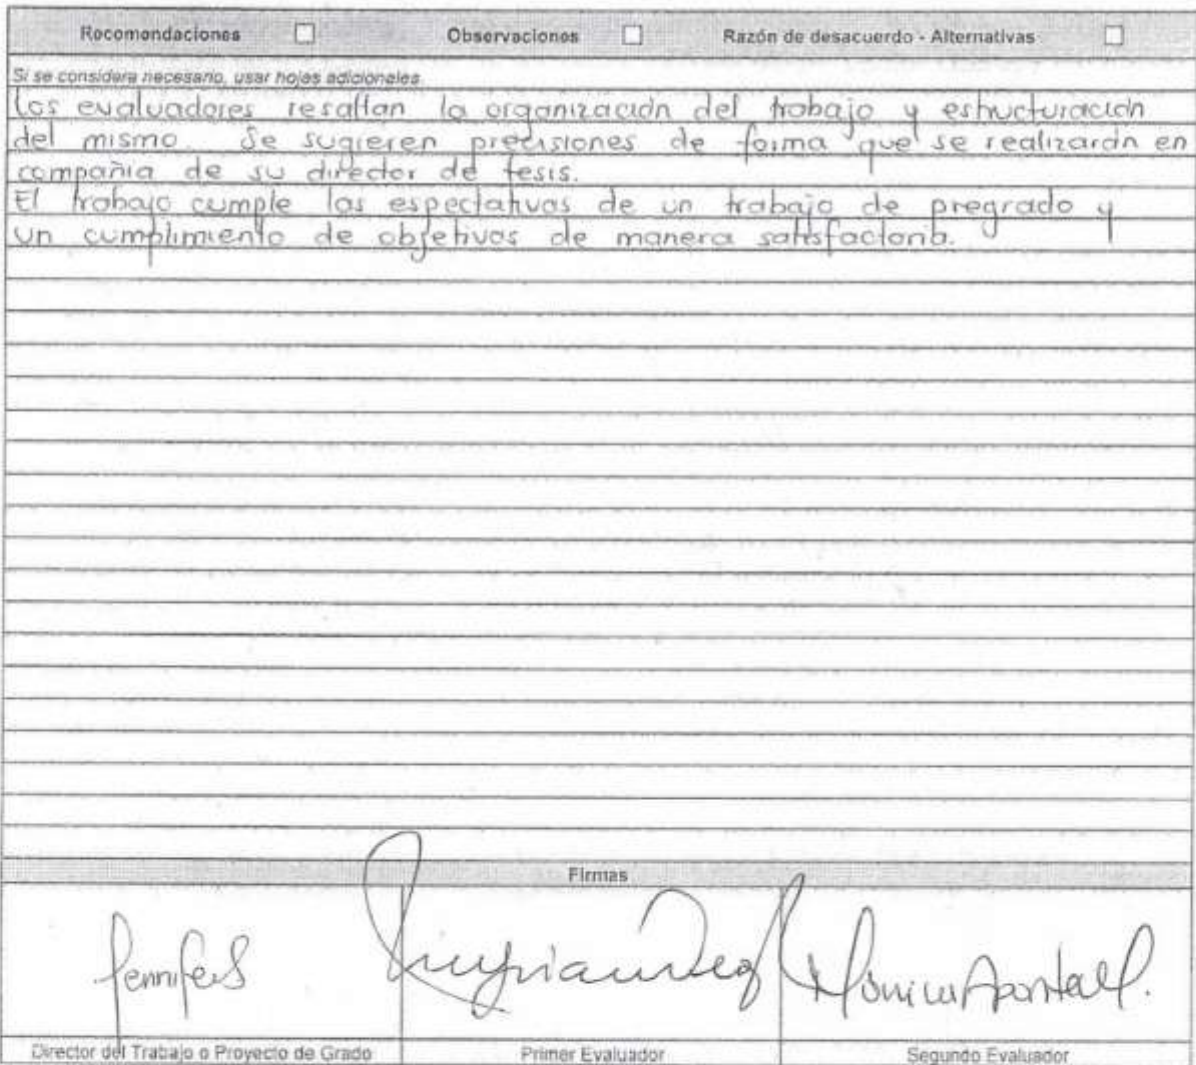 Recomendaciones ☐ Observaciones ☐ Razón de desacuerdo - Alternativas ☐
Si se considera necesario, usar hojas adicionales.
Los evaluadores resaltan la organización del trabajo y estructuración
del mismo. Se sugieren precisiones de forma que se realizarán en
compañia de su director de tesis.
El trabajo cumple las espectativas de un trabajo de pregrado y
un cumplimiento de objetivos de manera satisfactoria.
Firmas
JenniferS
Director del Trabajo o Proyecto de Grado Primer Evaluador Segundo Evaluador